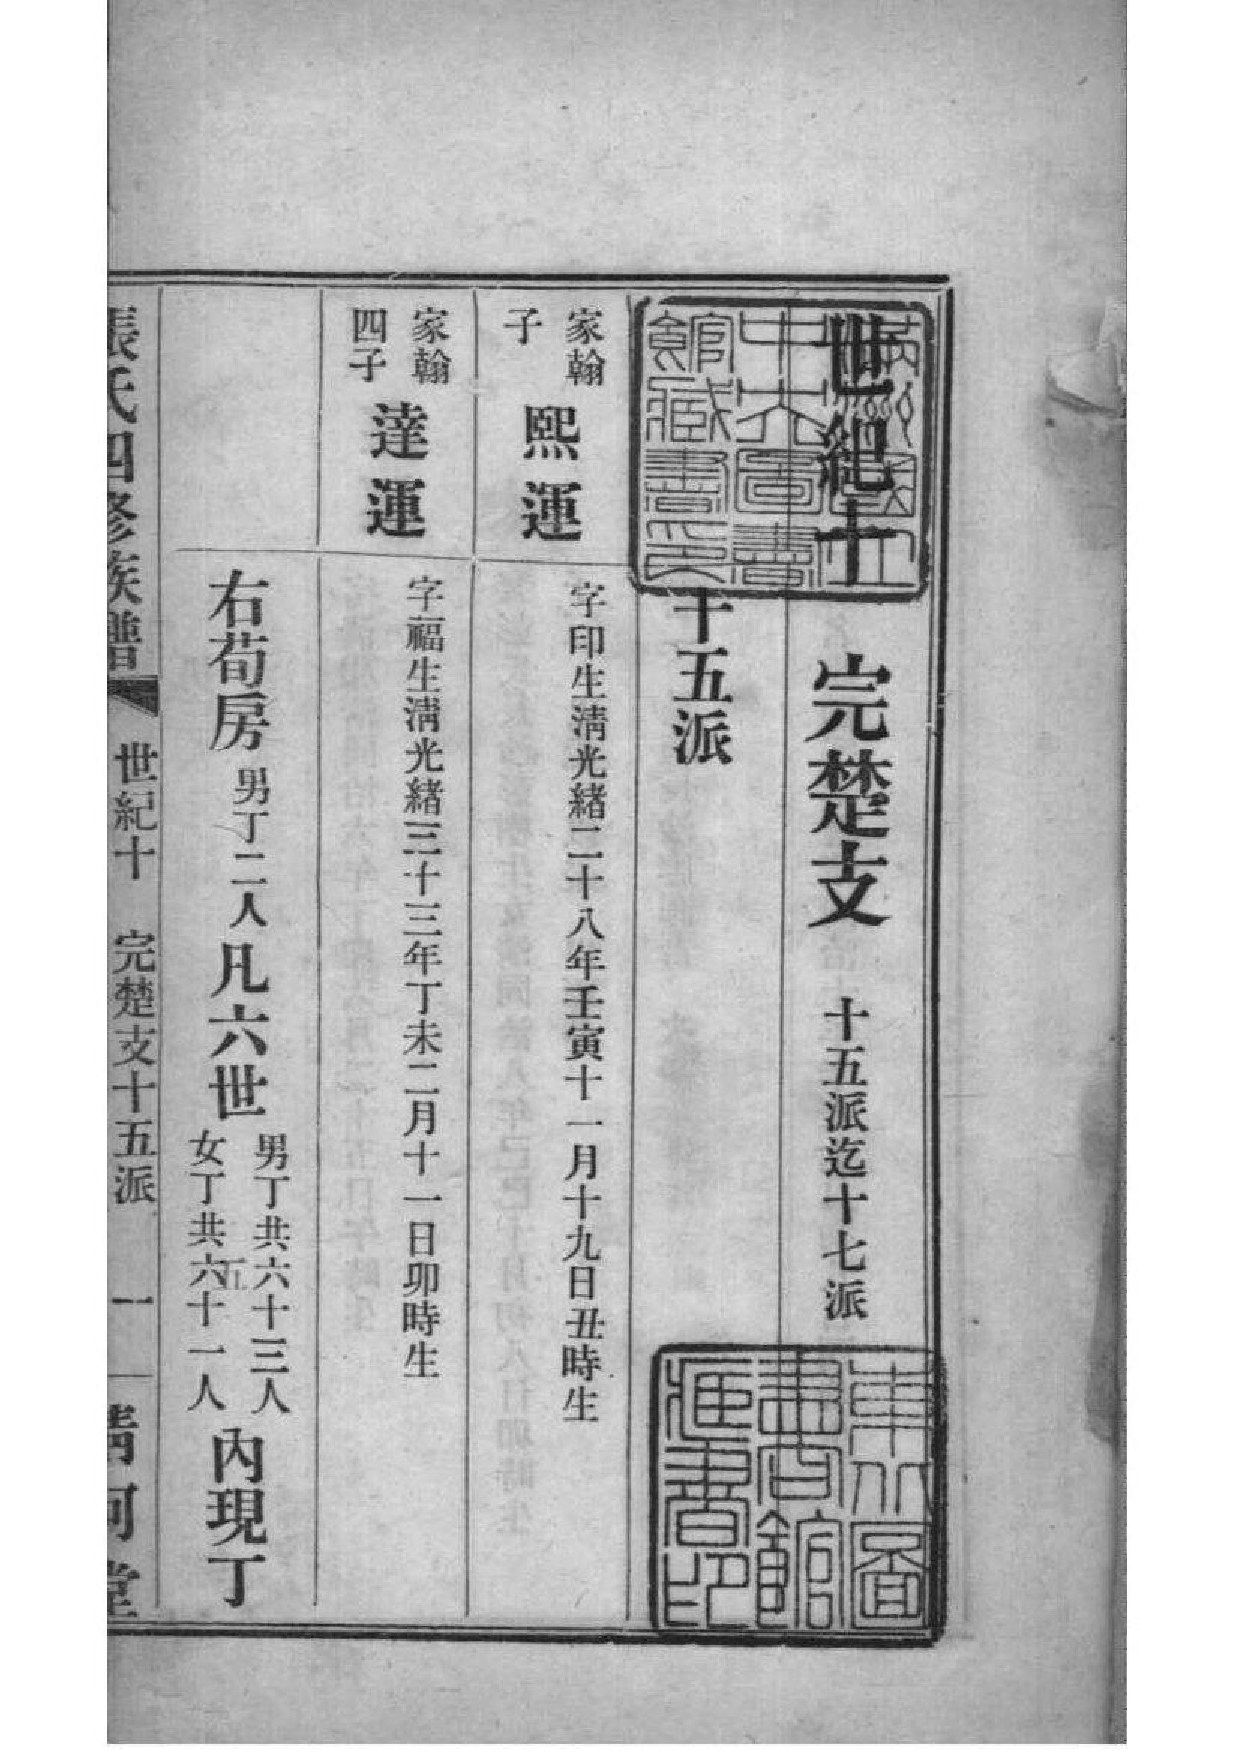 世紀十 完楚支 十五派迄十七派
十五派
家翰子 熙運 字印生淸光緒二十八年壬寅十一月十九日丑時生
家翰四子 達運 字福生淸光緒三十三年丁未二月十一日卯時生
右荀房 男丁二人 凡六世 男丁共六十三人 女丁共六十一人 內現丁
張氏四修族譜 世紀十 完楚支十五派 一 清河堂
東北圖書館藏書印
中央圖書館藏書印